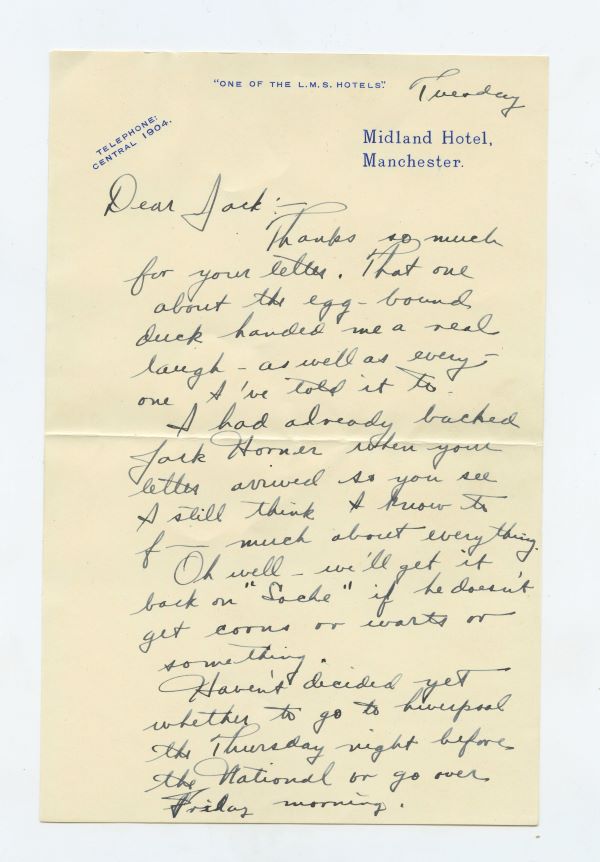 "ONE OF THE L.M.S. HOTELS".
Tuesday
TELEPHONE:
CENTRAL 1904.
Midland Hotel,
Manchester.
Dear Jack:—
Thanks so much
for your letter. That one
about the egg-bound
duck handed me a real
laugh - as well as every-
one I've told it to.
I had already backed
Jack Horner when your
letter arrived so you see
I still think I know to
f— much about everything.
Oh well - we'll get it
back on "Sache" if he doesn't
get corns or warts or
something.
Haven't decided yet
whether to go to Liverpool
the Thursday night before
the National or go over
Friday morning.